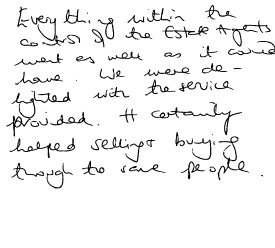 Everything within the
control of the Estate Agents
went as well as it could
have. We were de-
lighted with the service
provided. It certainly
helped selling & buying
through the same people.